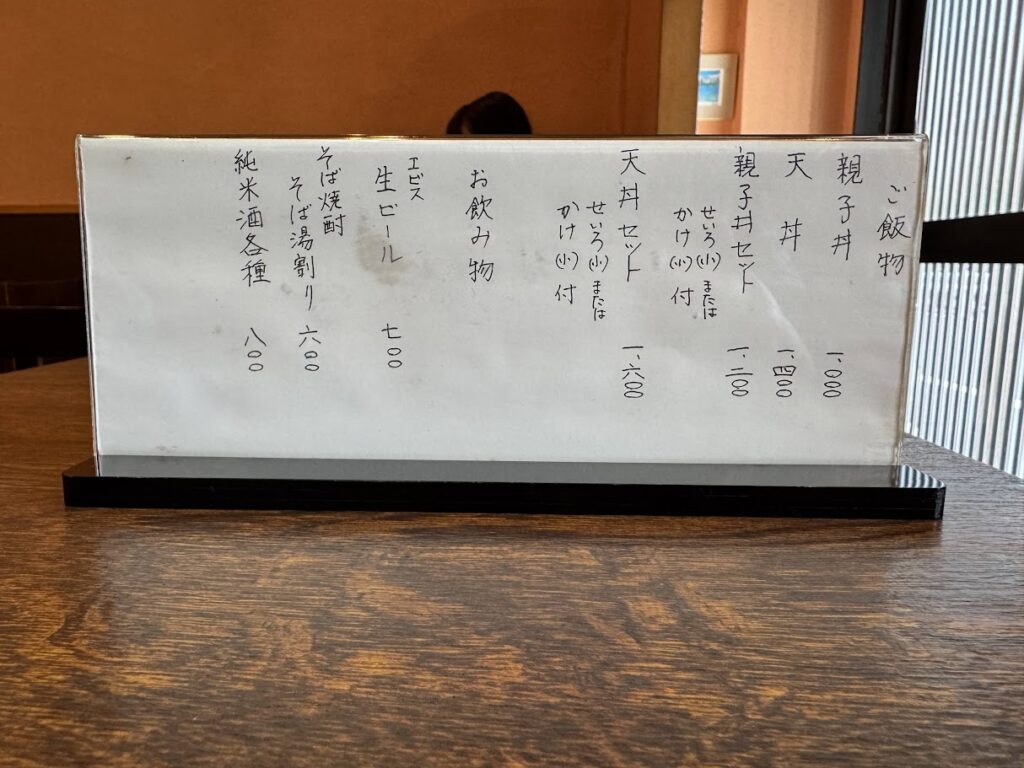 ご飯物
親子丼 一、〇〇〇
天丼 一、四〇〇
親子丼セット 一、二〇〇
せいろ(小)または
かけ(小)付
天丼セット 一、六〇〇
せいろ(小)または
かけ(小)付
お飲み物
エビス
生ビール 七〇〇
そば焼酎
そば湯割り 六〇〇
純米酒各種 八〇〇